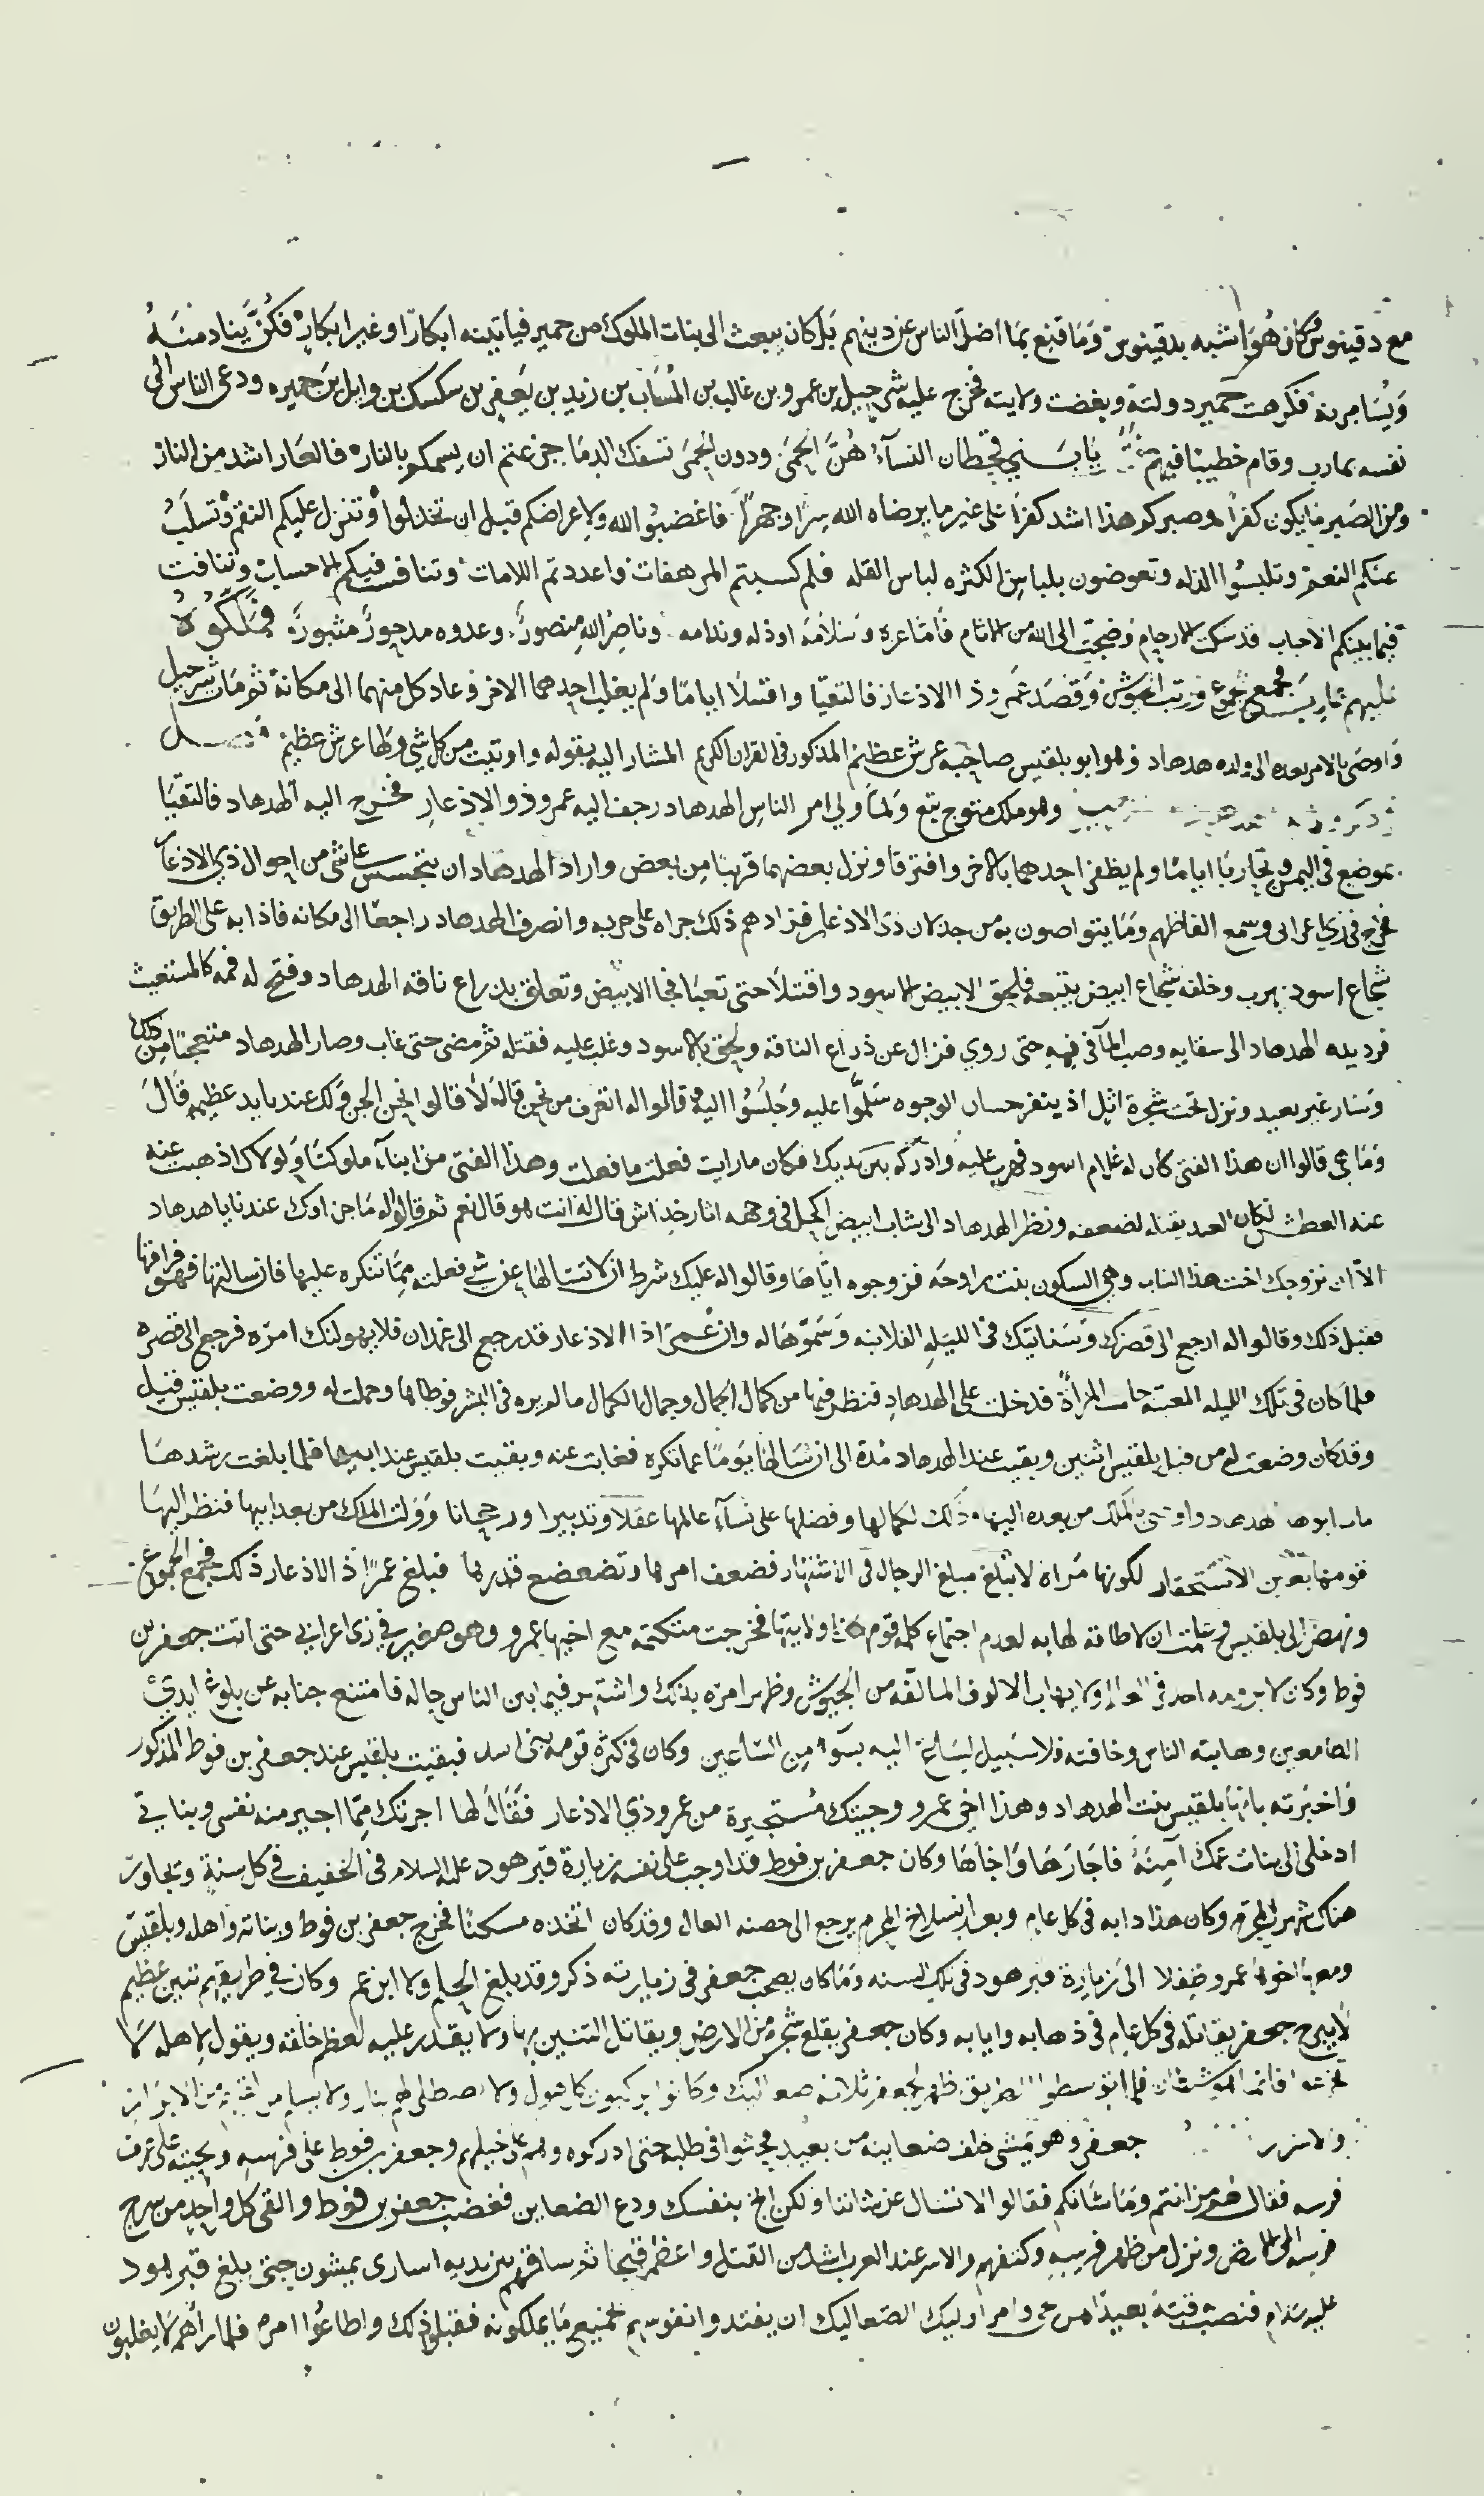 مع دقينوس فكان هو اشبه بدقينوس وما قنع بما اضل الناس عن دينهم بل كان يبعث الى بنات الملوك من حمير فياتينه ابكارا وغير ابكار فكن ينادمنه
ويسامرنه فكرهت حمير دولته وبغضت ولايته فخرج عليه شرحبيل بن عمرو بن غالب بن المنتاب بن زيد بن يعفر بن سكسك بن وايل بن حمير ودعى الناس الى
نفسه بمارب وقام خطيبا فيهم يا بني قحطان النسآء هن الحمى ودون الحمى تسفك الدما جزعتم ان يسمكم بالنار فالعار اشد من النار
ومن الصبر ما يكون كفرا وصبركم هذا اشد كفرا على غير ما يرضاه الله سرا وجهرا فاغضبوا لله ولاعراضكم قبل ان تخذلوا وتنزل عليكم النقم وتسلب
عنكم النعم وتلبسوا الذله وتعوضون بلباس الكثره لباس القله فلم كسبتم المرهفات واعددتم اللامات وتنافست فيكم الاحساب وتنافت
فيما بينكم الاحباب قد شكت الارحام وضجت الى الله من الاثام فاما عزه وسلامه او ذله وندامه وناصر الله منصور وعدوه مدحور مثبور فملكوه
عليهم فجمع الجموع ورتب الجيوش وقصد عمرو ذا الاذعار فالتقيا واقتتلا اياما ولم يغلب احدهما الاخر وعاد كل منهما الى مكانه ثم مات شرحبيل
واوصى بالامر بعده الى ولده هدهاد وهو ابو بلقيس صاحبه عرش عظيم المذكور في القران الكريم المشار اليه بقوله واوتيت من كل شي ولها عرش عظيم
وهو ملك متوج تبع ولما ولي امر الناس الهدهاد رجف اليه عمرو ذو الاذعار فخرج اليه الهدهاد فالتقيا
بموضع في اليمن وتحاربا اياما ولم يظفر احدهما بالاخر وافترقا ونزل بعضهما قريبا من بعض واراد الهدهاد ان يتجسس عن شي من احوال ذي الاذعار
فخرج في زي اعرابي وسمع الفاظهم وما يتواصون به من خذلان ذى الاذعار فزادهم ذلك جراه على حربه وانصرف الهدهاد راجعا الى مكانه فاذا به على الطريق
شجاع اسود يهرب وخلفه شجاع ابيض يتبعه فلحق الابيض الاسود واقتتلا حتى تعبا فجا الابيض وتعلق بذراع ناقه الهدهاد وفتح له فمه كالمستغيث
فرد يده الهدهاد الى سقايه وصب المآ في فيه حتى روي فزال عن ذراع الناقه ولحق بالاسود وغلب عليه فقتله ثم مضى حتى غاب وصار الهدهاد متعجبا من ذلك
وسار غير بعيد ونزل تحت شجرة اثل اذ بنفر حسان الوجوه سلموا عليه وجلسوا اليه وقالوا له اتعرف من نحن قال لا قالوا نحن الجن ولك عندنا يد عظيمه قال
وما هي قالوا ان هذا الفتى كان له غلام اسود فهرب عليه وادركه بين يديك فكان ما رايت فعلت ما فعلت وهذا الفتى من ابنآء ملوكنا ولولاك اذهبت عنه
عنه العطش لكان العبد يقتله لضعفه ونظر الهدهاد الى شاب ابيض اكحل في وجهه اثار خداش قال له انت هو قال نعم ثم قالوا له ما جزاوك عندنا يا هدهاد
الا ان نزوجك اخت هذا الشاب وهي السكون بنت رواحه فزوجوه اياها وقالوا له عليك شرط ان لا تسالها عن شي فعلته مما تنكره عليها فان سالتها فهو فراقها
فقبل ذلك وقالوا له ارجع الى قصرك وستاتيك في الليله الفلانيه وسموها له وان عمرا ذا الاذعار قد رجع الى غمدان فلا يهولنك امره فرجع الى قصره
فلما كان في تلك الليله المعينه جات المراة فدخلت على الهدهاد فنظر فيها من كمال الجمال وجمال الكمال ما لم يره في البشر فوطاها وحملت له ووضعت بلقيس قبل
وقد كان وضعت له من قبل بلقيس اثنين وبقيت عند الهدهاد مدة الى ان سالها يوما عما تكره فغابت عنه وبقيت بلقيس عند ابيها فلما بلغت رشدها
مات ابوها الهدهاد واوصى بالملك من بعده اليها وذلك لكمالها وفضلها على نسآء عالمها عقلا وتدبيرا ورجحانا وولت الملك من بعد ابيها فنظر اليها
قومها بعين الاستحقار لكونها مراة لا تبلغ مبلغ الرجال في الاشتهار فضعف امرها وتضعضع قدرها فبلغ عمرا ذا الاذعار ذلك فجمع الجموع
ونهض الى بلقيس وعلمت ان لا طاقه لها به لعدم اجتماع كلمه قومها ولايتها فخرجت متكتمه مع اخيها عمرو وهو صغير في زى اعرابي حتى اتت جعفر بن
قوط وكان لا يرومه احد ولا يهاب الالوف المالفه من الجيوش وظهر امره بذلك واشتهر فيما بين الناس حاله فامتنع جنابه عن بلوغ ايدي
الطامعين وهابته الناس وخافته فلا سبيل لساع اليه بسوء من الساعين وكان في كثرة قومه بني اسد فبقيت بلقيس عند جعفر بن قوط المذكور
واخبرته بانها بلقيس بنت الهدهاد وهذا اخي عمرو وجيتك مستجيرة من عمرو ذي الاذعار فقال لها اجرتك مما اجير منه نفسي وبناتي
ادخلي الى بنات عمك آمنة فاجارها واخاها وكان جعفر بن قوط قد اوجب على نفسه زيارة قبر هود عليه السلام في الخفيف في كل سنة ويجاور
هناك شهر المحرم وكان هذا دابه في كل عام وبعد انسلاخ المحرم يرجع الى حصنه العال وقد كان اتخذه مسكنا فخرج جعفر بن قوط وبناته واهله وبلقيس
ومعها اخوها عمرو طفلا الى زيارة قبر هود في تلك السنه وما كان يصحب جعفر في زيارته ذكر وقد بلغ الحلم ولا ابن عم وكان في طريقهم تنين عظيم
لا يبرح جعفر يقاتله في كل عام في ذهابه وايابه وكان جعفر يقلع شجره من الارض ويقاتل التنين بها ولا يقدر عليه لعظم خلقه ويقول لاهله لا
فلما توسطوا الطريق ظهر لجعفر ثلاثه صعاليك وكانوا يركبون
جعفر وهو يمشي خلف ضعاينه من بعيد فجثوا في طلبه حتى ادركوه وهم على خيلهم وجعفر بن قوط على فرسه ولحيته على عرف
فرسه فقال لهم من انتم وما شانكم فقالوا لا تسال عن شاننا ولكن انج بنفسك ودع الضعاين فغضب جعفر بن قوط والقى كل واحد من سرج
فرسه الى الارض ونزل من ظهر فرسه وكتفهم والاسر عند العرب اشد من القتل واعظم قبحا ثم ساقهم بين يديه اسارى يمشون حتى بلغ قبر هود
عليه السلام فنصب قبته بعيدا وامر اوليك الصعاليك ان يفتدوا انفوسهم بجميع ما يملكونه فقبلوا ذلك واطاعوا امره فلما راهم لا يغلبون